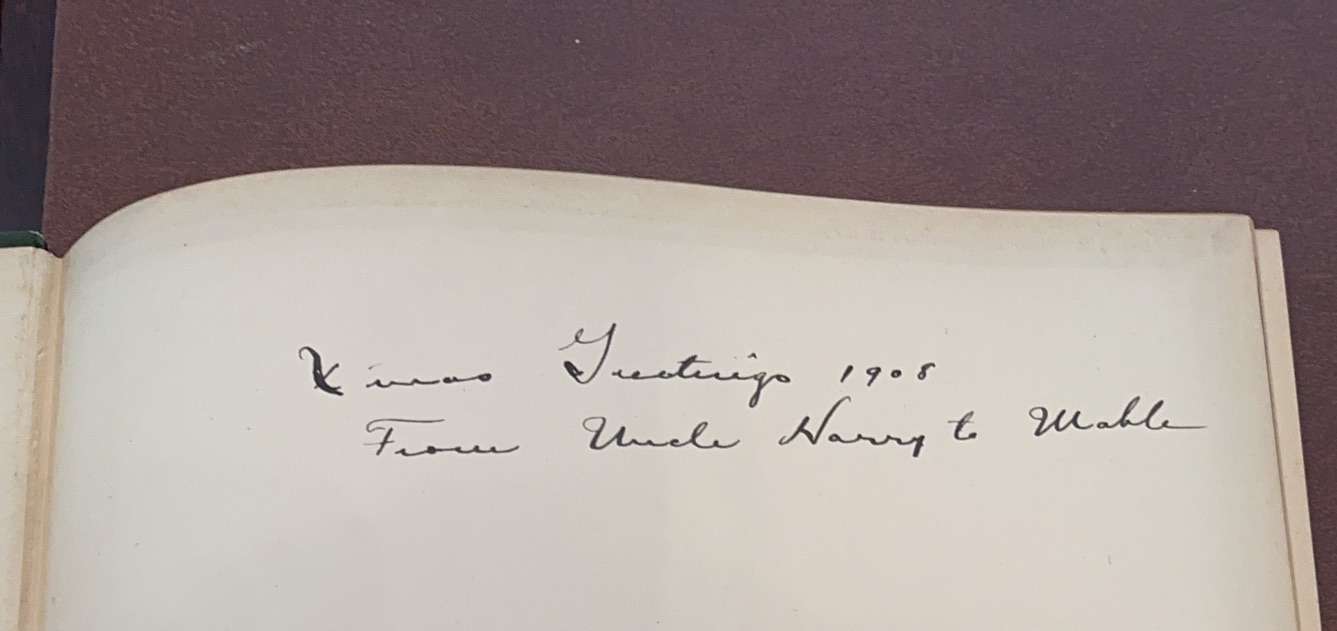 Xmas Greetings 1908
From Uncle Harry to Mable